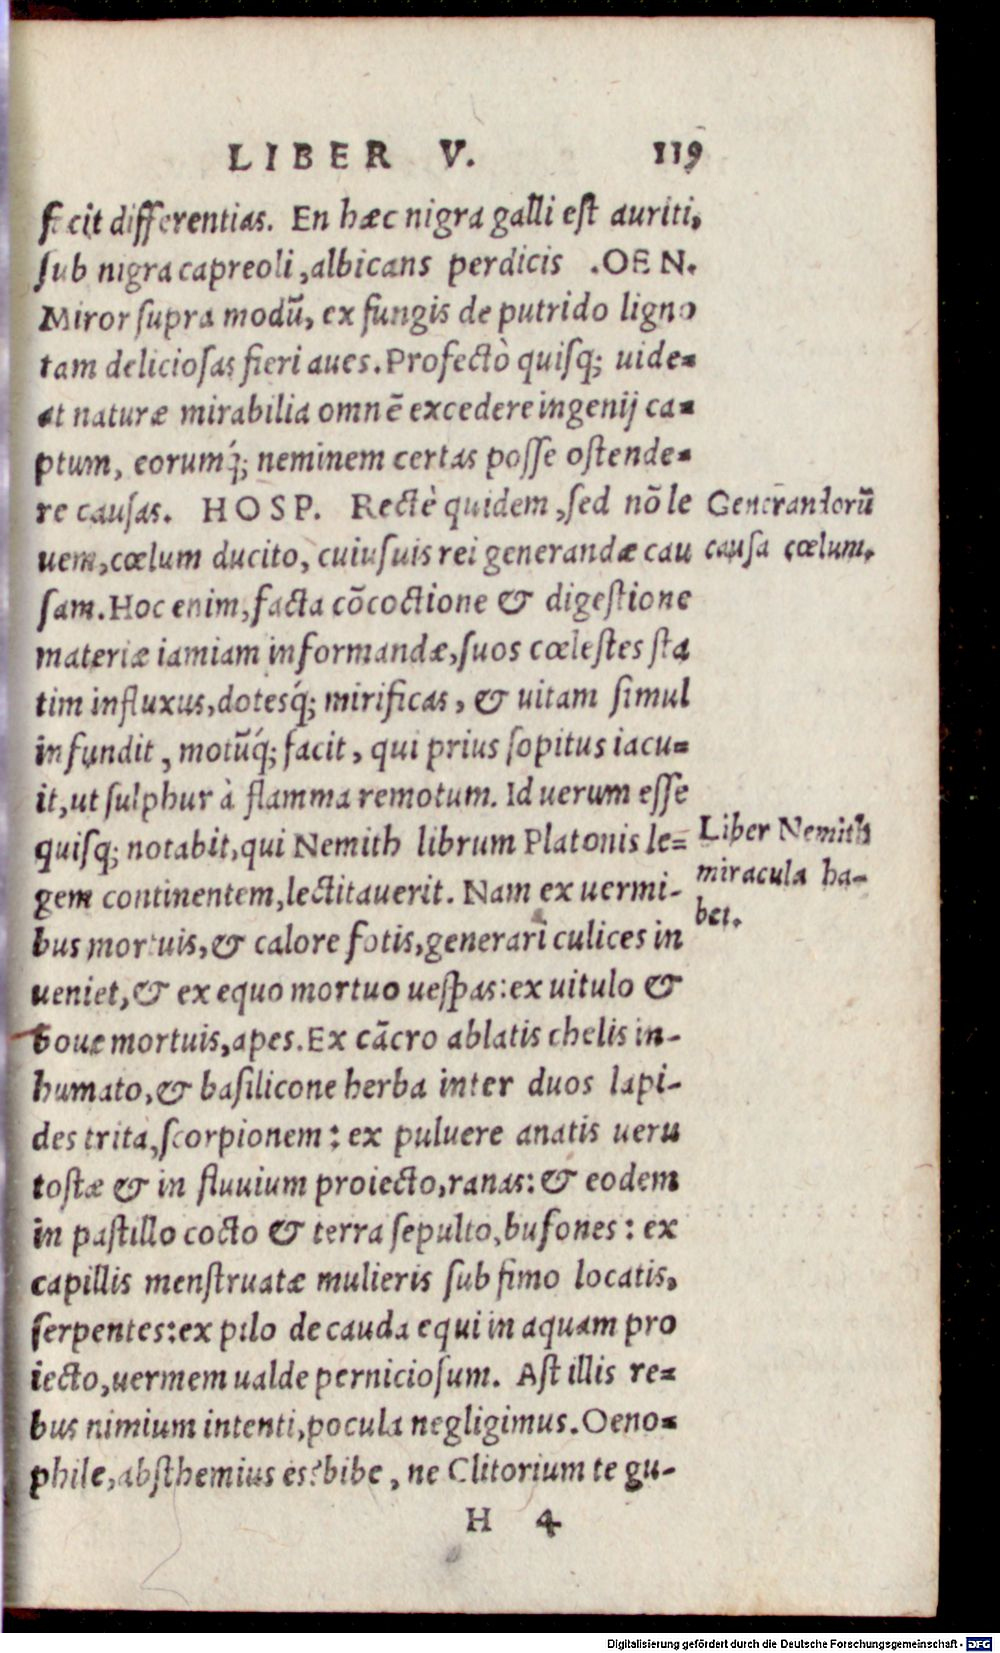 LIBER V. 119
fecit differentias. En hæc nigra galli est auriti,
sub nigra capreoli, albicans perdicis .OEN.
Miror supra modū, ex fungis de putrido ligno
tam deliciosas fieri aues. Profectò quisq; uide=
at naturæ mirabilia omnē excedere ingenij ca=
ptum, eorumq́; neminem certas posse ostende=
re causas. HOSP. Rectè quidem, sed nō le
uem, cœlum ducito, cuiusuis rei generandæ cau
Generandorū
causa cœlum.
sam. Hoc enim, facta cōcoctione & digestione
materiæ iamiam informandæ, suos cœlestes sta
tim influxus, dotesq́; mirificas, & uitam simul
infundit, motūq́; facit, qui prius sopitus iacu=
it, ut sulphur à flamma remotum. Id uerum esse
quisq; notabit, qui Nemith librum Platonis le=
gem continentem, lectitauerit. Nam ex uermi-
bus mortuis, & calore fotis, generari culices in
Liber Nemith
miracula ha-
bet.
ueniet, & ex equo mortuo uespas: ex uitulo &
boue mortuis, apes. Ex cācro ablatis chelis in-
humato, & basilicone herba inter duos lapi-
des trita, scorpionem: ex puluere anatis ueru
tostæ & in fluuium proiecto, ranas: & eodem
in pastillo cocto & terra sepulto, bufones: ex
capillis menstruatæ mulieris sub fimo locatis,
serpentes: ex pilo de cauda equi in aquam pro
iecto, uermem ualde perniciosum. Ast illis re=
bus nimium intenti, pocula negligimus. Oeno=
phile, absthemius es? bibe, ne Clitorium te gu-
H 4
Digitalisierung gefördert durch die Deutsche Forschungsgemeinschaft - DFG